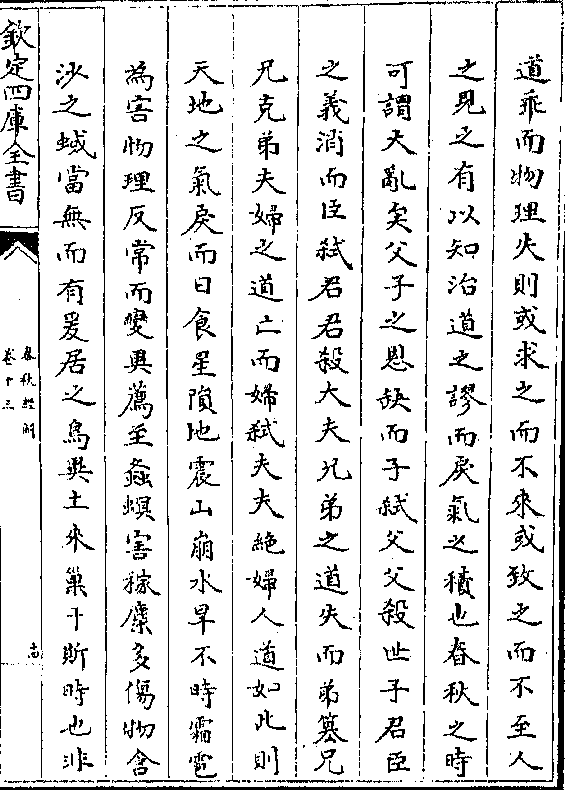 道乖而物理失則或求之而不來或致之而不至人
之見之有以知治道之謬而戾氣之積也春秋之時
可謂大亂矣父子之恩缺而子弑父父殺世子君臣
之義消而臣弑君君殺大夫兄弟之道失而弟簒兄
兄克弟夫婦之道亡而婦弑夫夫絶婦人道如此則
天地之氣戾而日食星隕地震山崩水旱不時霜雹
為害物理反常而變異薦至螽螟害稼麋多傷物含
沙之蜮當無而有爰居之鳥異土來巢于斯時也非
欽定四庫全書
春秋經解
卷十三
十四